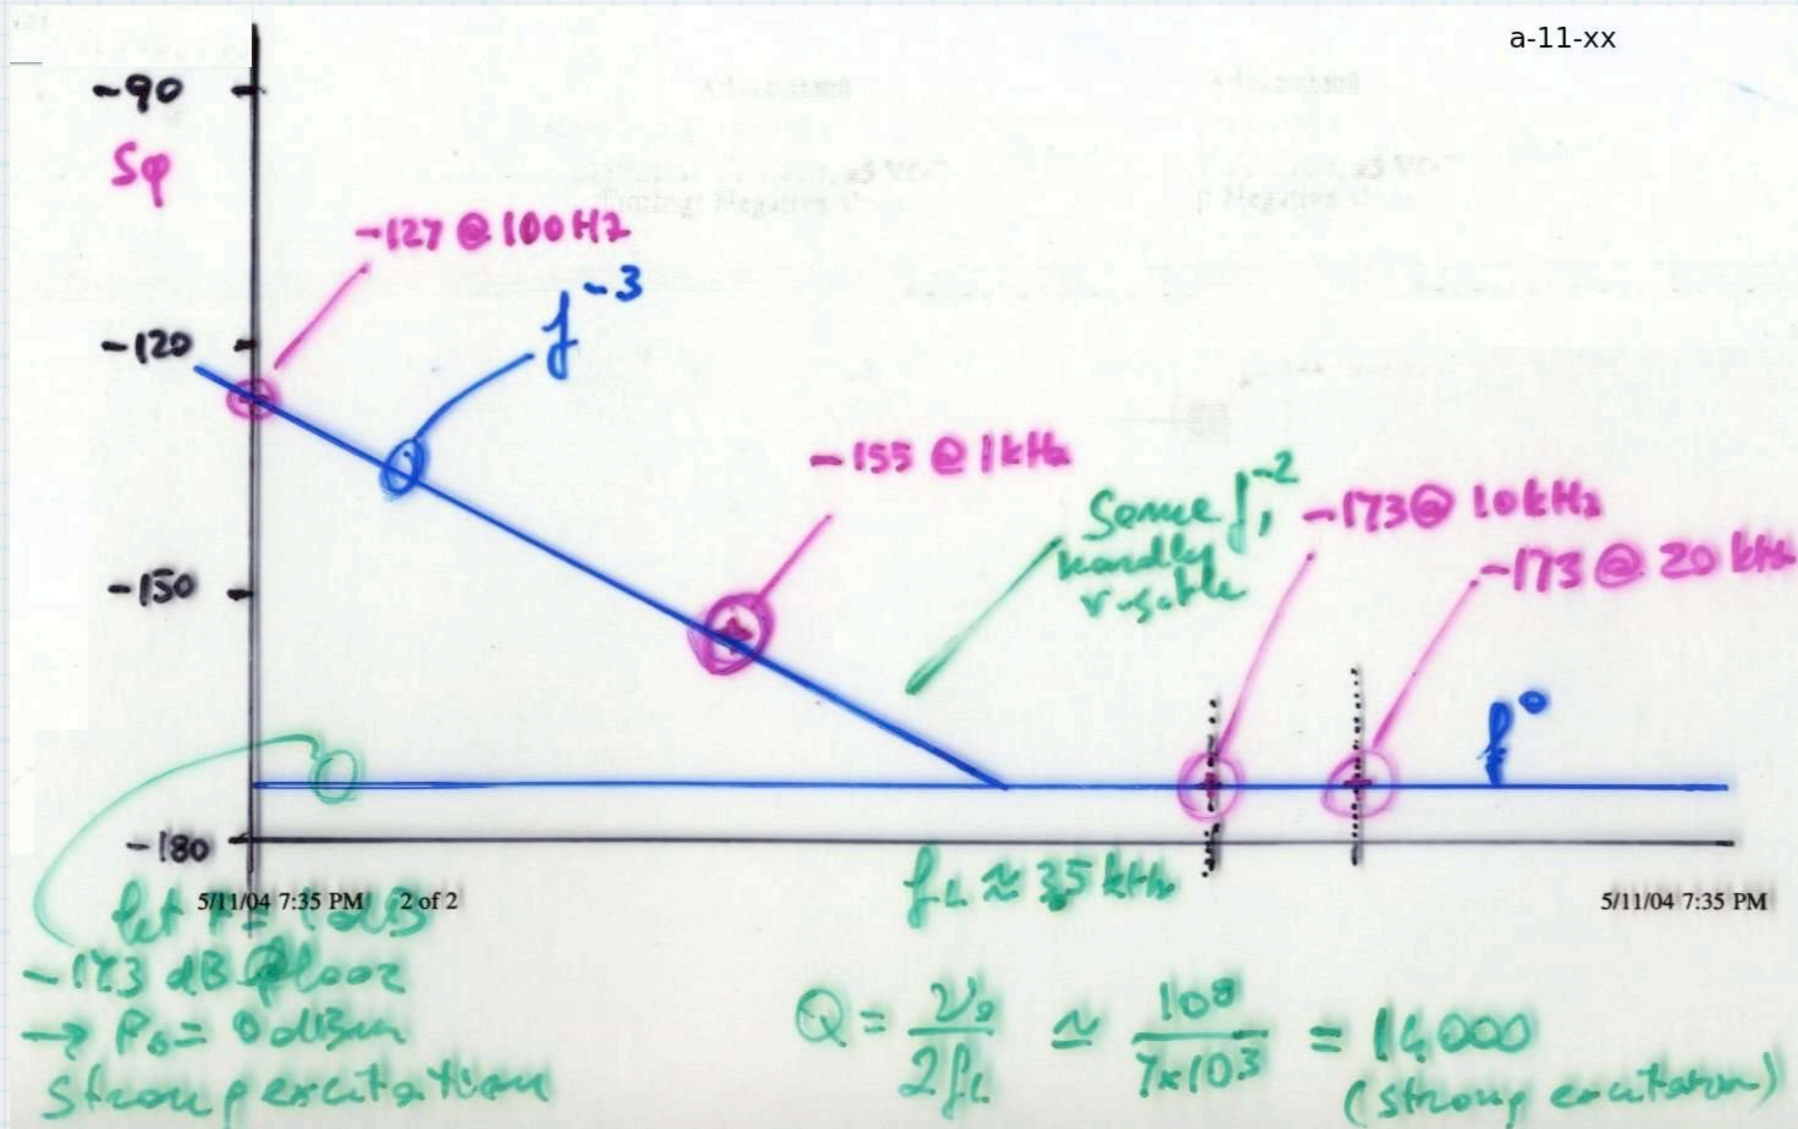 a-11-xx
-90
Sφ
-127 @ 100 Hz
f⁻³
-120
-155 @ 1 kHz
Some f⁻²,
hardly
visible
-173 @ 10 kHz
-173 @ 20 kHz
-150
f⁰
-180
fL ≈ 3,5 kHz
5/11/04 7:35 PM 2 of 2
5/11/04 7:35 PM
let F = 1 dB
-173 dB floor
→ P₀ = 0 dBm
strong excitation
Q = ν₀ / 2fL ≃ 10⁸ / 7×10³ = 14,000
(strong excitation)